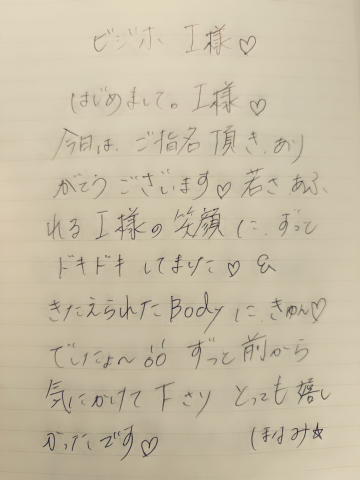 ビジホ I様♡
はじめまして。I様♡
今日は、ご指名頂き、あり
がとうございます♡若さあふ
れるI様の笑顔に、ずっと
ドキドキしてました♡&
きたえられたBodyに、きゅん♡
でしたよ〜 ずっと前から
気にかけて下さり とっても嬉し
かったです♡ ほなみ☆